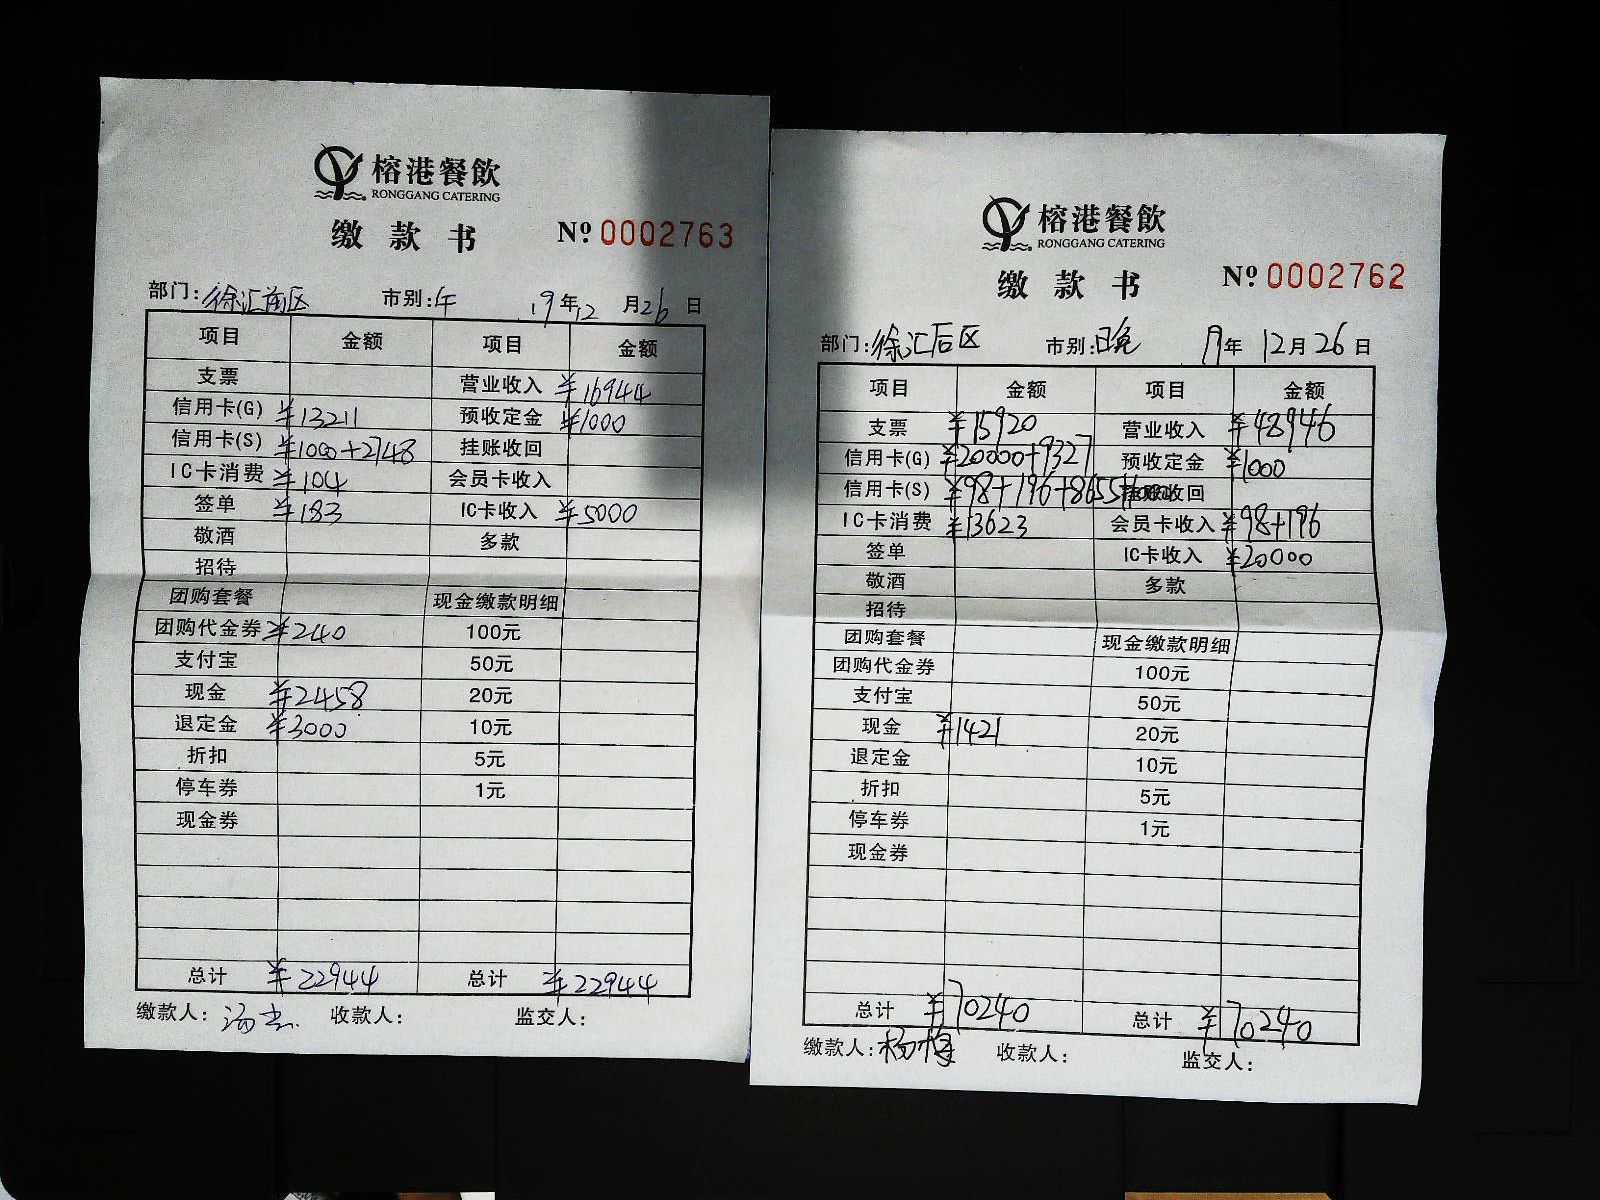 榕港餐飲
RONGGANG CATERING
缴款书 Nº 0002763
部门:徐汇前区 市别:午 19年12月26日
项目 金额 项目 金额
支票 营业收入 ¥16944
信用卡(G) ¥13211 预收定金 ¥1000
信用卡(S) ¥1000+2748 挂账收回
IC卡消费 ¥104 会员卡收入
签单 ¥183 IC卡收入 ¥5000
敬酒 多款
招待
团购套餐 现金缴款明细
团购代金券 ¥240 100元
支付宝 50元
现金 ¥2458 20元
退定金 ¥3000 10元
折扣 5元
停车券 1元
现金券
总计 ¥22944 总计 ¥22944
缴款人: 收款人: 监交人:
榕港餐飲
RONGGANG CATERING
缴款书 Nº 0002762
部门:徐汇后区 市别:晚 19年12月26日
项目 金额 项目 金额
支票 ¥15920 营业收入 ¥48946
信用卡(G) ¥20000+9327 预收定金 ¥1000
信用卡(S) ¥98+196+8655+1000 挂账收回
IC卡消费 ¥13623 会员卡收入 ¥98+196
签单 IC卡收入 ¥20000
敬酒 多款
招待
团购套餐 现金缴款明细
团购代金券 100元
支付宝 50元
现金 ¥1421 20元
退定金 10元
折扣 5元
停车券 1元
现金券
总计 ¥70240 总计 ¥70240
缴款人:杨梅 收款人: 监交人: